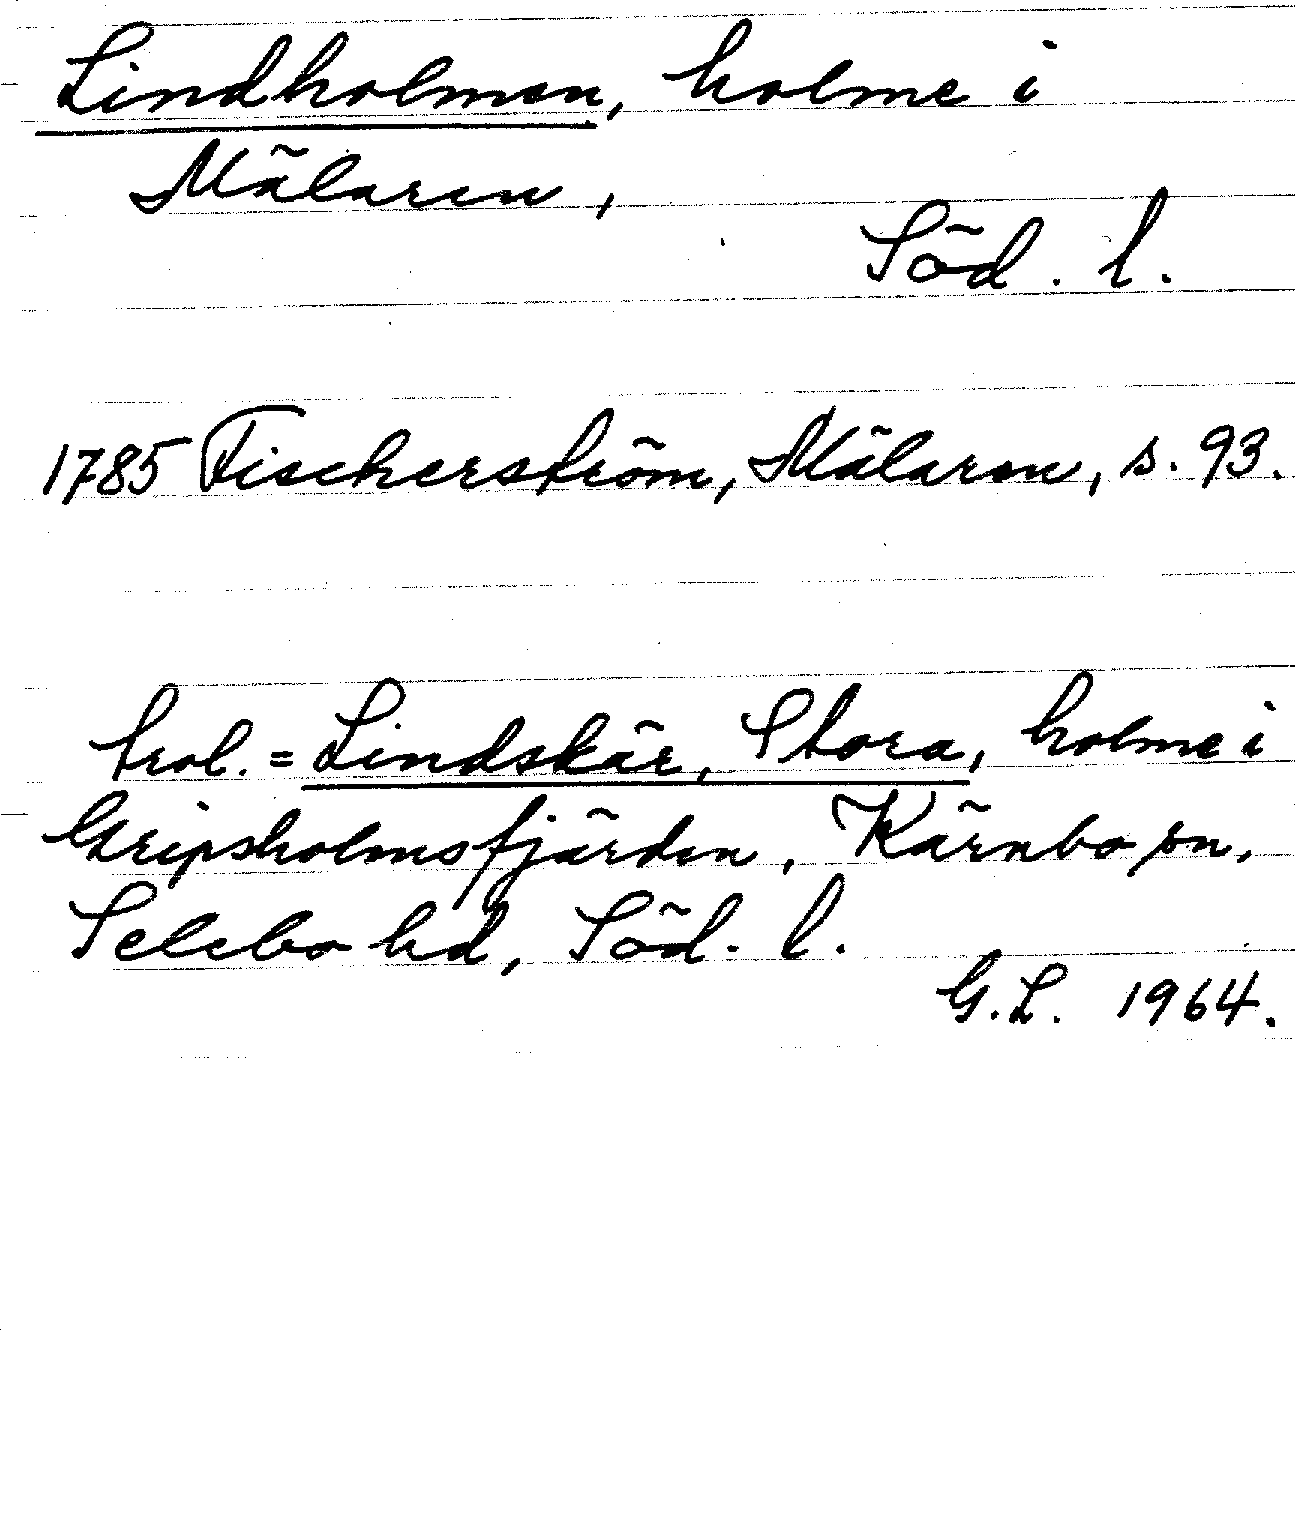 Lindholmen, holme i
Mälaren,
Söd. l.
1785 Fischerström, Mälaren, s. 93.
trol. = Lindskär, Stora, holme i
Gripsholmsfjärden, Kärnbo sn,
Selebo hd, Söd. l.
G.L. 1964.